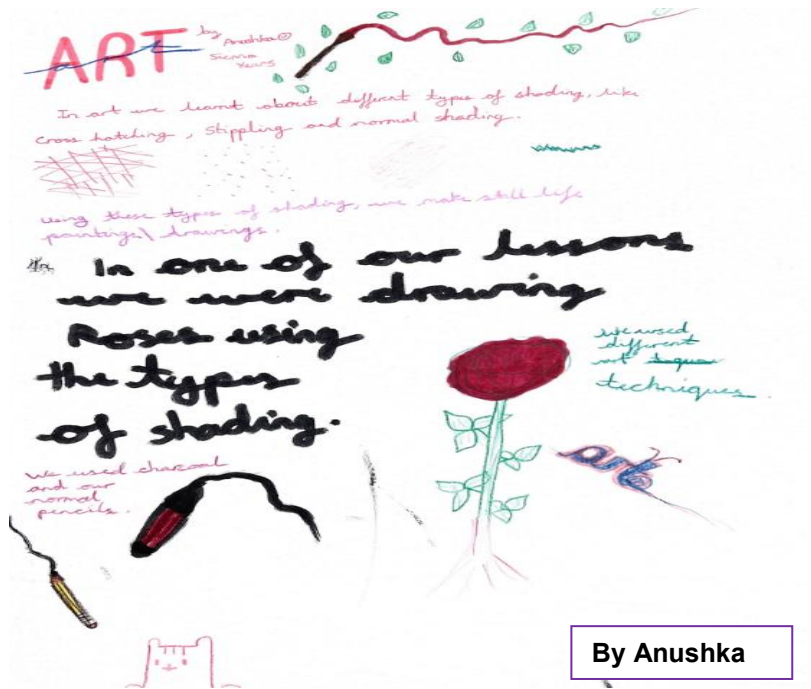 ART
art
by
Anushka
Sienna
Years
In art we learnt about different types of shading, like
cross hatching, stippling and normal shading.
using these types of shading, we make still life
paintings\ drawings.
In one of our lessons
we were drawing
Roses using
the types
of shading.
we used
different
art
techniques.
We used charcoal
and our
normal
pencils.
art
By Anushka